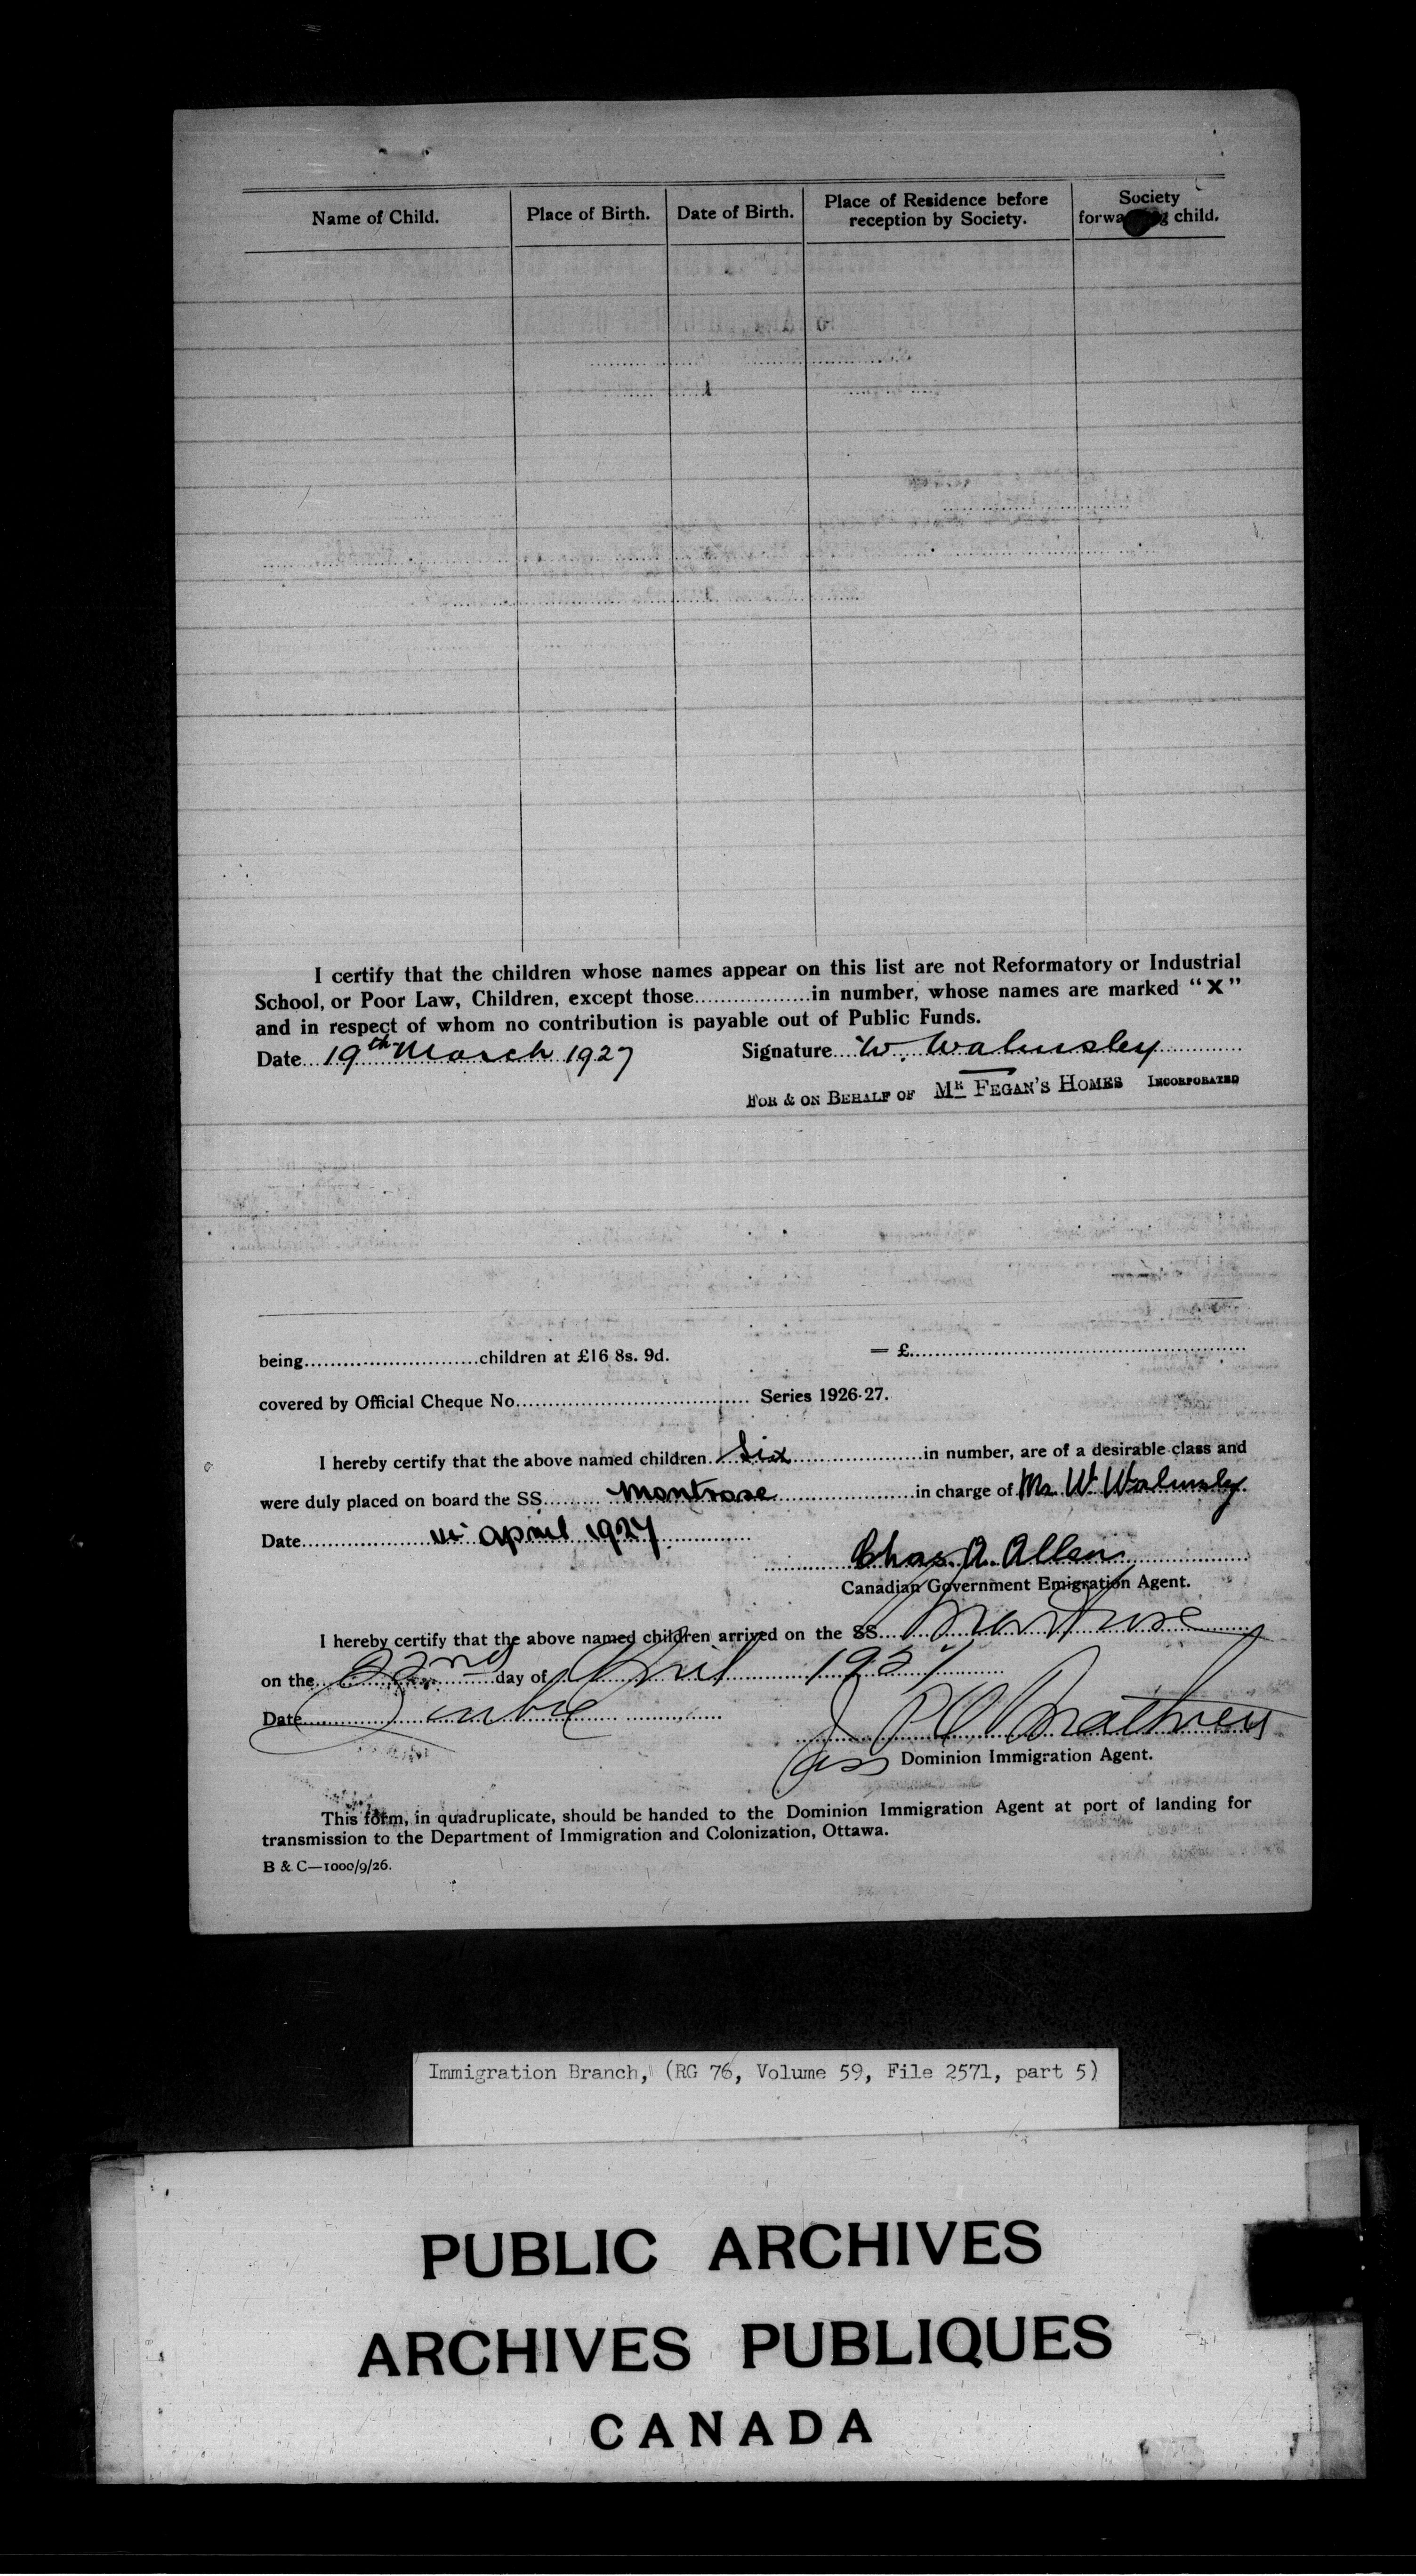 Name of Child. Place of Birth. Date of Birth. Place of Residence before reception by Society. Society forwarding child.
I certify that the children whose names appear on this list are not Reformatory or Industrial
School, or Poor Law, Children, except those..................in number, whose names are marked "X"
and in respect of whom no contribution is payable out of Public Funds.
Date 19th March 1927 Signature W. Walmsley
FOR & ON BEHALF OF MR FEGAN'S HOMES INCORPORATED
being...........................children at £16 8s. 9d. = £....................................................
covered by Official Cheque No.................................... Series 1926-27.
I hereby certify that the above named children Six in number, are of a desirable class and
were duly placed on board the SS. Montrose in charge of Mr. W Walmsley.
Date April 1927
Chas. A. Allen
Canadian Government Emigration Agent.
I hereby certify that the above named children arrived on the SS. Montrose
on the 22nd day of April 1927
Date
Mathieu
Ass Dominion Immigration Agent.
This form, in quadruplicate, should be handed to the Dominion Immigration Agent at port of landing for
transmission to the Department of Immigration and Colonization, Ottawa.
B & C—1000/9/26.
Immigration Branch, (RG 76, Volume 59, File 2571, part 5)
PUBLIC ARCHIVES
ARCHIVES PUBLIQUES
CANADA